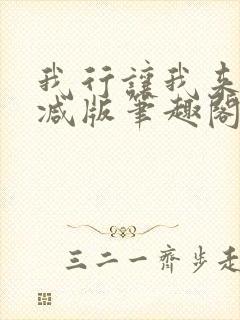 我行讓我來
减版筆趣閣
三二一齊步走